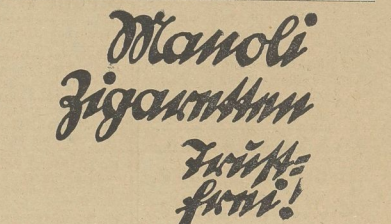 Manoli
Zigaretten
Trust-
frei!